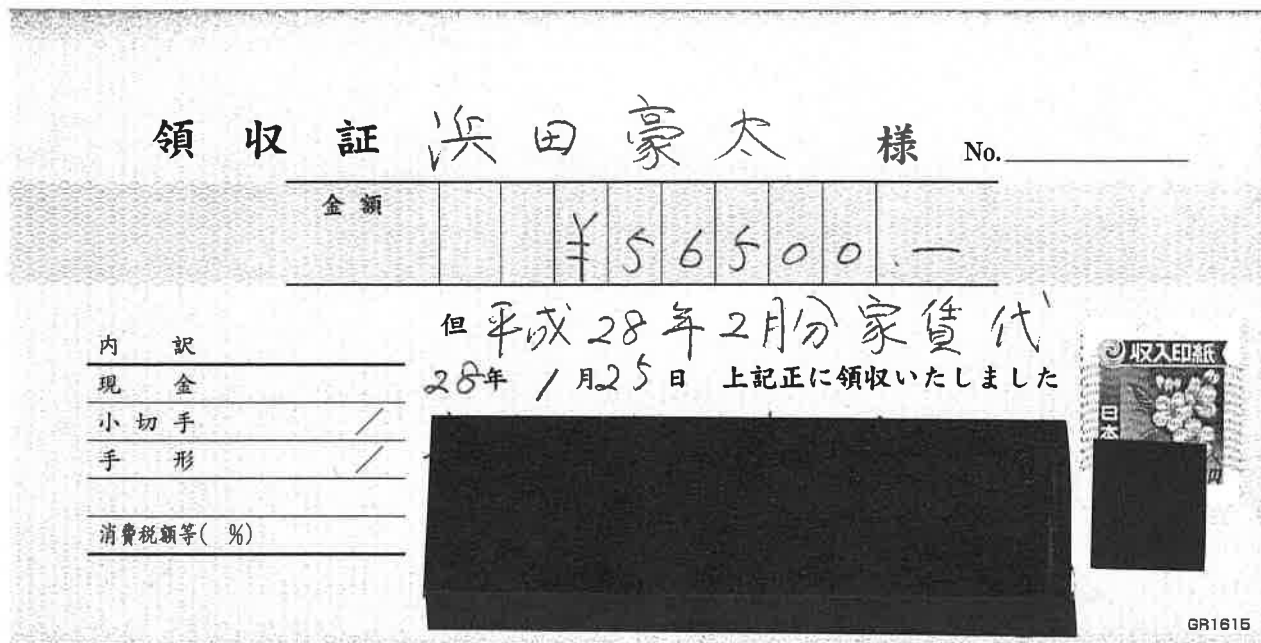 領収証 浜田豪太 様 No.
金額 ¥56500.—
但 平成28年2月分家賃代
28年1月25日 上記正に領収いたしました
内訳
現金
小切手 /
手形 /
消費税額等( %)
収入印紙
日本
円
GR1615